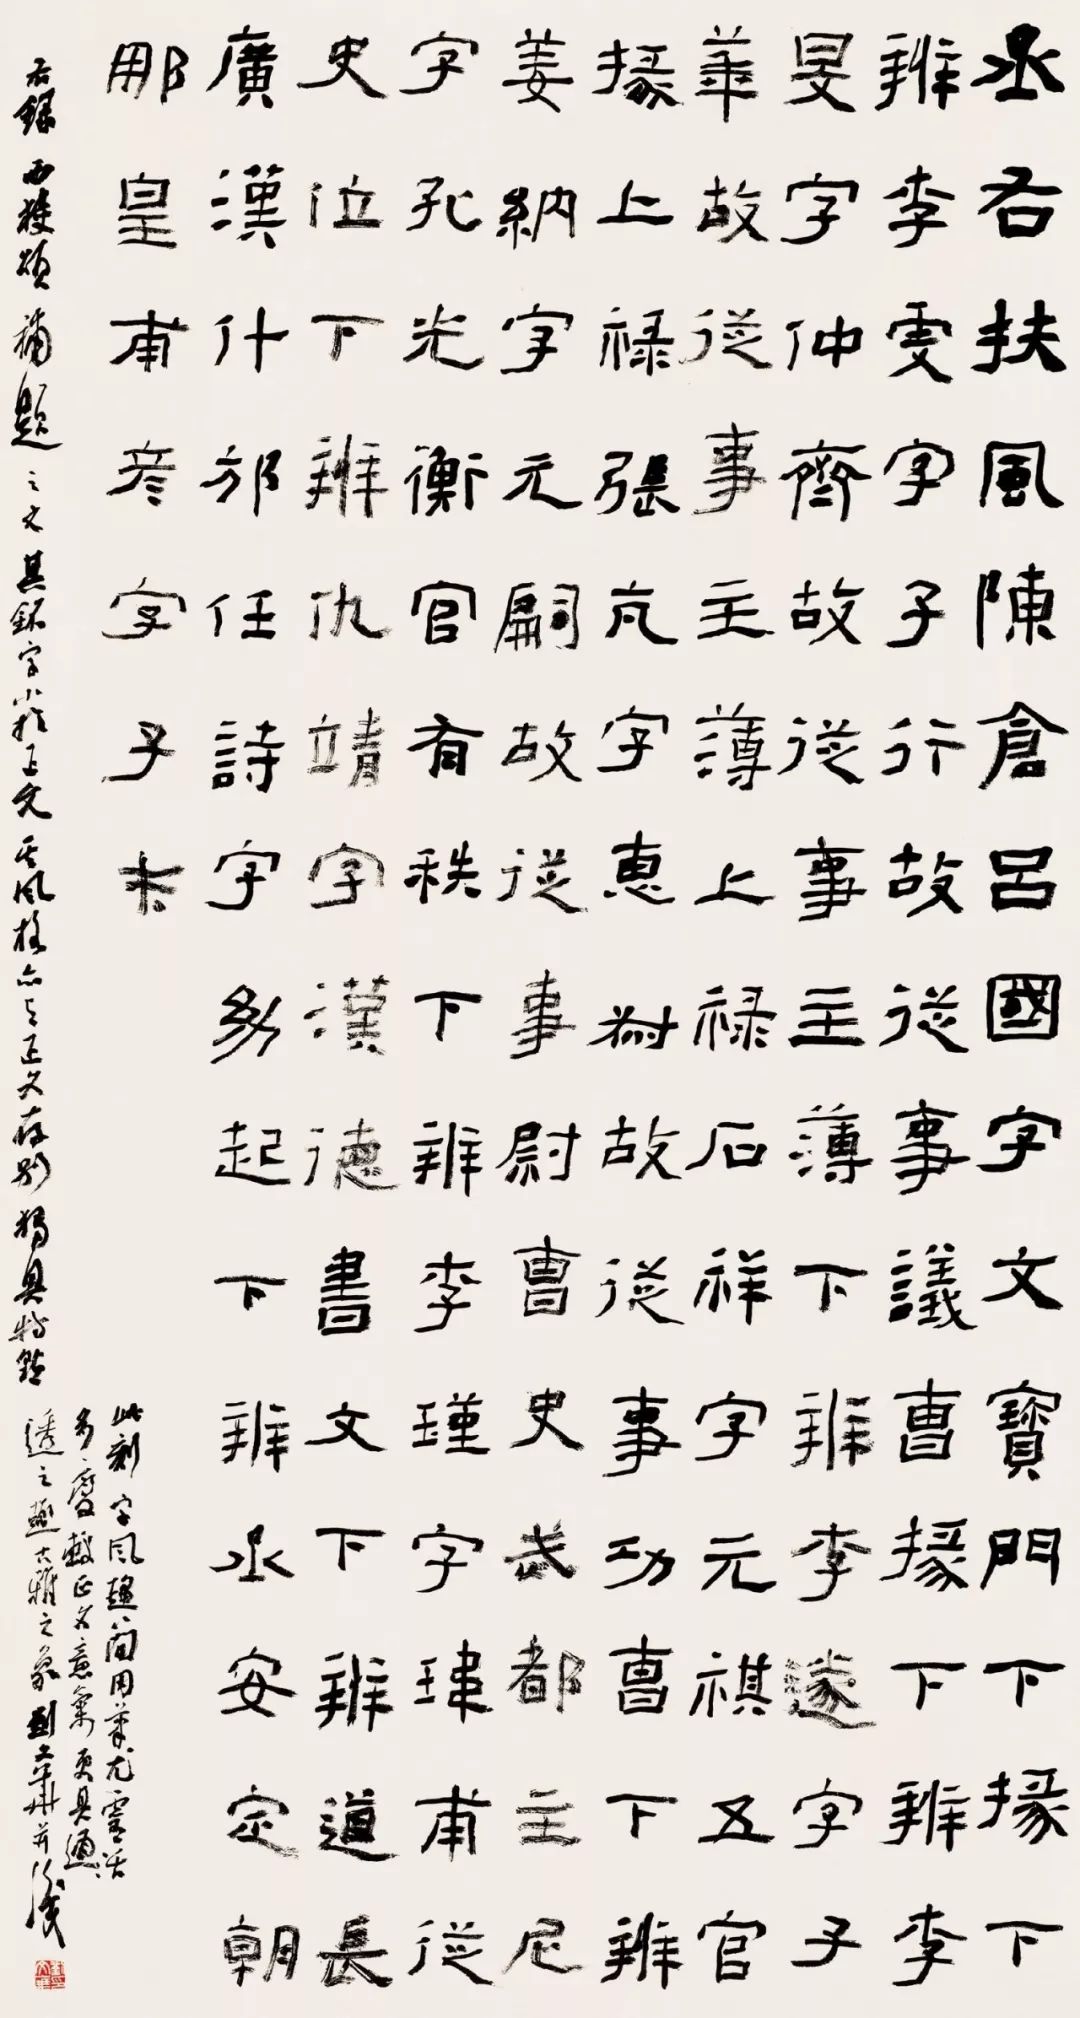 丞右扶風陳倉呂國字文寶門下掾下
辨李雯字子行故從事議曹掾下辨李
旻字仲齊故從事主薄下辨李遂字子
華故從事主薄上禄石祥字元祺五官
掾上禄張亢字惠叔故從事功曹下辨
姜納字元嗣故從事尉曹史武都王尼
字孔光衡官有秩下辨李瑾字瑋甫從
史位下辨仇靖字漢德書文下辨道長
廣漢什邡任詩字幼起下辨丞安定朝
那皇甫彦字子才
右録西狹頌補題之文其銘字小於正文其風格亦與正文有別獨具特點
此刻字風趨簡用筆尤靈活
多處較正文意氣更具通
透之趣古雅之象劉文華并識